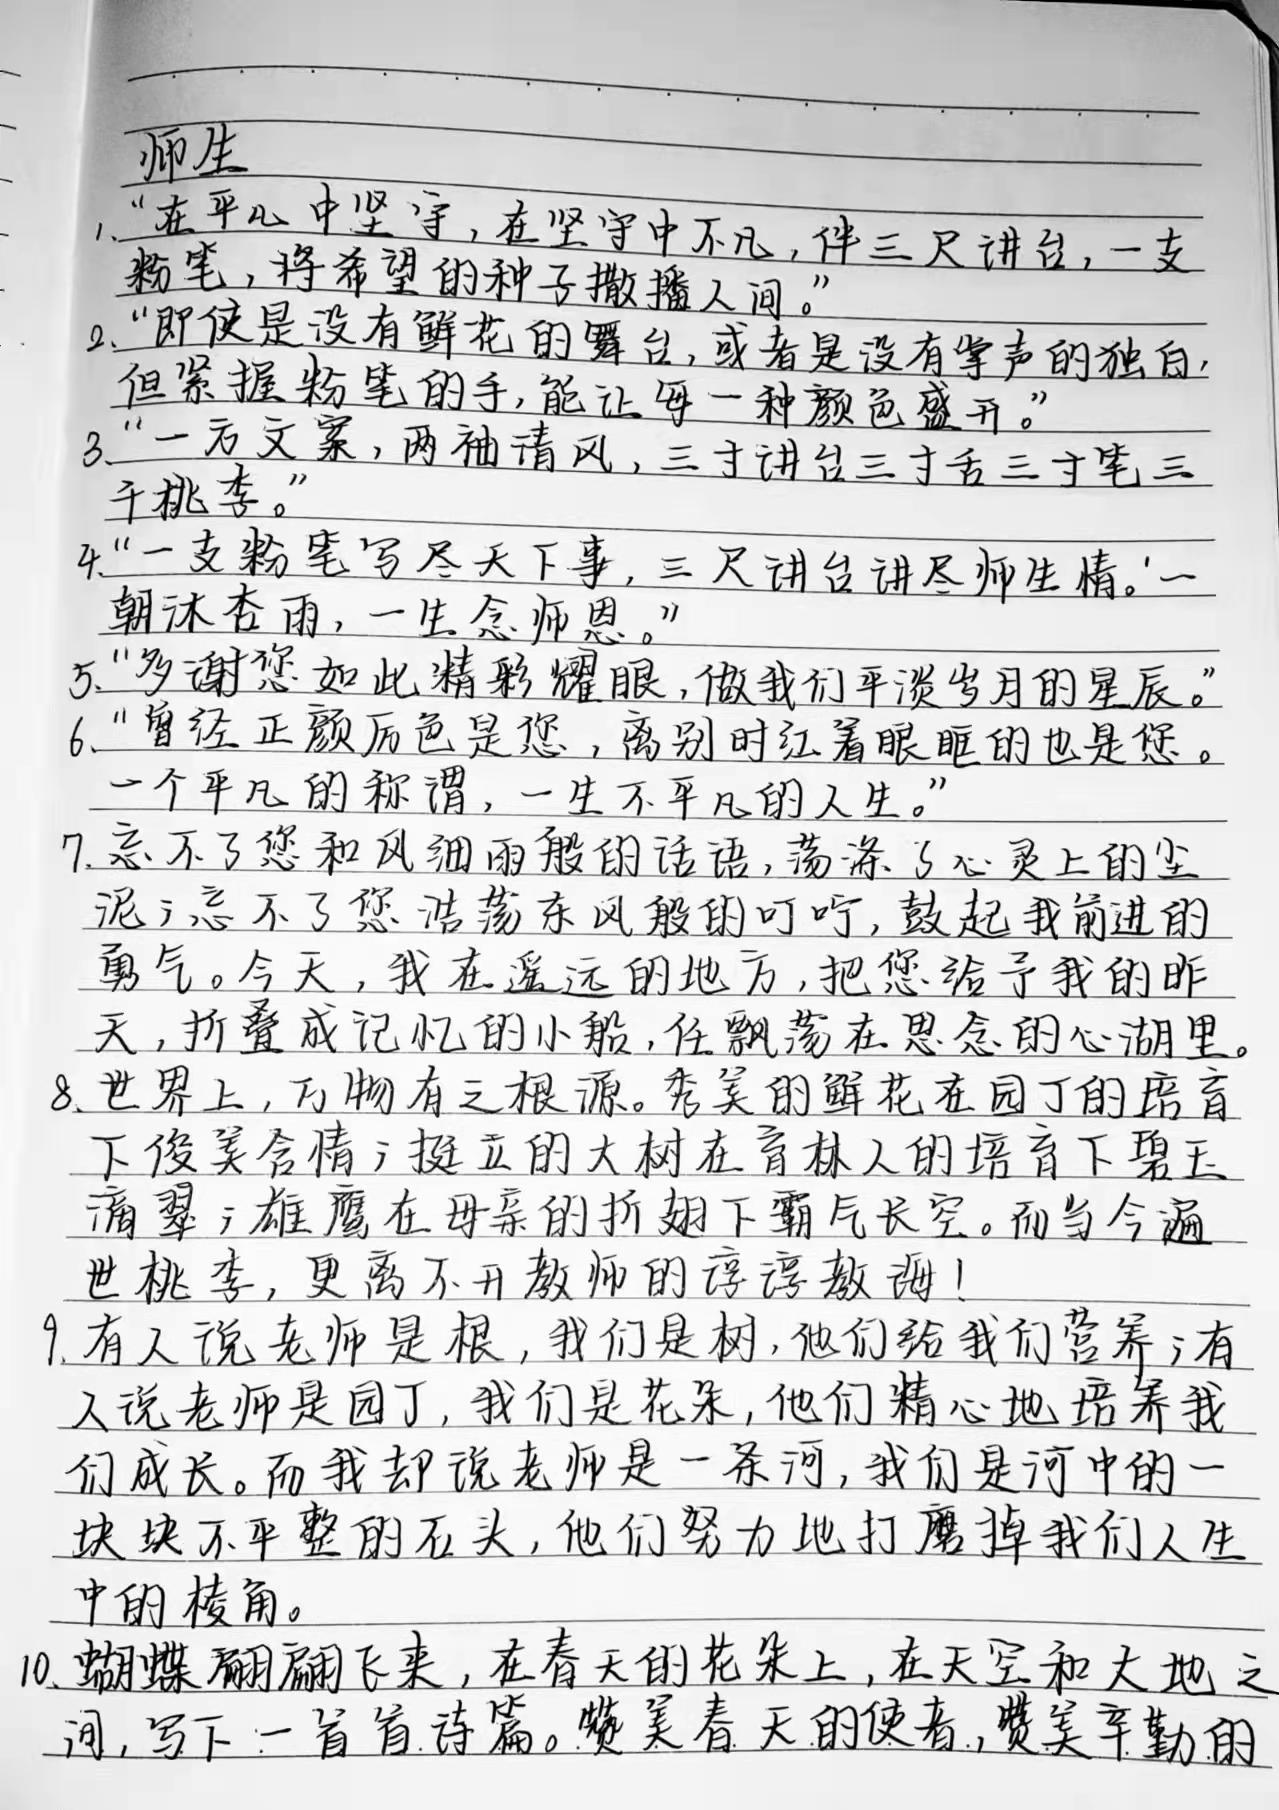 师生
1、“在平凡中坚守,在坚守中不凡,伴三尺讲台,一支
粉笔,将希望的种子撒播人间。”
2、“即使是没有鲜花的舞台,或者是没有掌声的独白,
但紧握粉笔的手,能让每一种颜色盛开。”
3、“一方文案,两袖清风,三寸讲台三寸舌三寸笔三
千桃李。”
4、“一支粉笔写尽天下事,三尺讲台讲尽师生情。'一
朝沐杏雨,一生念师恩。”
5、“多谢您如此精彩耀眼,做我们平淡岁月的星辰。”
6、“曾经正颜厉色是您,离别时红着眼眶的也是您。
一个平凡的称谓,一生不平凡的人生。”
7、忘不了您和风细雨般的话语,荡涤了心灵上的尘
泥;忘不了您浩荡东风般的叮咛,鼓起我前进的
勇气。今天,我在遥远的地方,把您给予我的昨
天,折叠成记忆的小船,任飘荡在思念的心湖里。
8、世界上,万物有之根源。秀美的鲜花在园丁的培育
下俊美含情;挺立的大树在育林人的培育下碧玉
滴翠;雄鹰在母亲的折翅下霸气长空。而当今遍
世桃李,更离不开教师的谆谆教诲!
9、有人说老师是根,我们是树,他们给我们营养;有
人说老师是园丁,我们是花朵,他们精心地培养我
们成长。而我却说老师是一条河,我们是河中的一
块块不平整的石头,他们努力地打磨掉我们人生
中的棱角。
10、蝴蝶翩翩飞来,在春天的花朵上,在天空和大地之
间,写下一首首诗篇。赞美春天的使者,赞美辛勤的